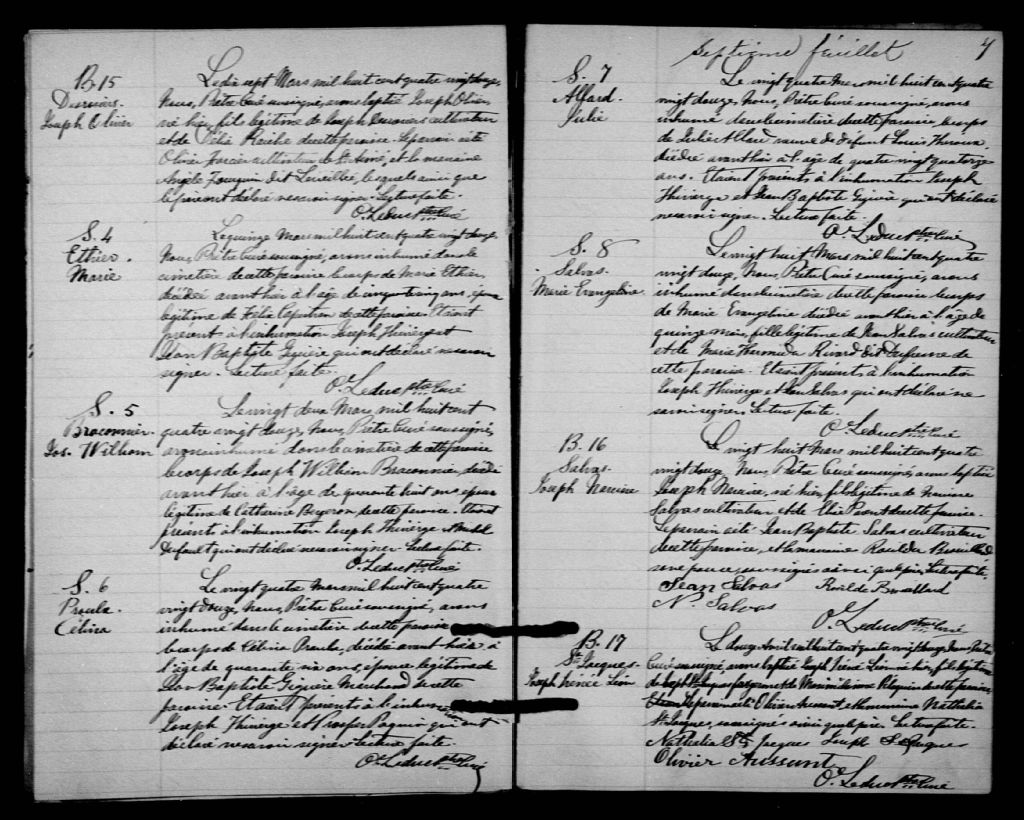 B. 15
Desrosiers.
Joseph Olivier
Le dix sept Mars mil huit cent quatre vingt douze,
Nous, Prêtre Curé soussigné, avons baptisé Joseph Olivier,
né hier, fils légitime de Joseph Desrosiers cultivateur
et de Célia Roche de cette paroisse. Le parrain a été
Olivier cultivateur de St. Aimé, et la marraine
Angèle dit Leveillée, lesquels ainsi que
le père ont déclaré ne savoir signer. Lecture faite.
O. Leduc ptre Curé
S. 4
Ethier.
Marie
Le quinze Mars mil huit cent quatre vingt douze
Nous, Prêtre Curé soussigné, avons inhumé dans le
cimetière de cette paroisse le corps de Marie Ethier,
décédée avant hier à l'âge de cinquante ans, épouse
légitime de Félix de cette paroisse. Etaient
présent à l'inhumation Joseph Thivierge et
Jean Baptiste Giguère qui ont déclaré ne savoir
signer. Lecture faite.
O. Leduc ptre Curé
S. 5
Braconnier.
Jos. William
Le vingt deux Mars mil huit cent
quatre vingt douze, Nous, Prêtre Curé soussigné,
avons inhumé dans le cimetière de cette paroisse
le corps de Joseph William Braconnier décédé
avant hier à l'âge de quarante huit ans époux
légitime de Catherine Bergeron de cette paroisse. Etaient
présent à l'inhumation Joseph Thivierge et
Dufault qui ont déclaré ne savoir signer Lecture faite.
O. Leduc ptre Curé
S. 6
Proulx.
Célina
Le vingt quatre Mars mil huit cent quatre
vingt douze, Nous, Prêtre Curé soussigné, avons
inhumé dans le cimetière de cette paroisse
le corps de Célina Proulx, décédée avant hier à
l'âge de quarante six ans, épouse légitime de
Jean Baptiste Giguère Marchand de cette
paroisse. Etaient présents à l'inhumation
Joseph Thivierge et Prosper Paquin qui ont
déclaré ne savoir signer Lecture faite.
O. Leduc ptre Curé
Septième feuillet
7
S. 7
Allard.
Julie
Le vingt quatre Mars mil huit cent quatre
vingt douze, Nous, Prêtre Curé soussigné, avons
inhumé dans le cimetière de cette paroisse, le corps
de Julie Allard veuve de défunt Louis Théroux.
décédée avant hier à l'âge de quatre vingt quatorze
ans. Etaient présents à l'inhumation Joseph
Thivierge et Jean Baptiste Giguère qui ont déclaré
ne savoir signer. Lecture faite.
O. Leduc ptre Curé
S. 8
Salvas.
Marie Evangeline
Le vingt huit Mars mil huit cent quatre
vingt douze, Nous, Prêtre Curé soussigné, avons
inhumé dans le cimetière de cette paroisse le corps
de Marie Evangeline décédée avant hier à l'âge de
quinze mois, fille légitime de Jean Salvas cultivateur
et de Marie Hermina Rivard dit Dufresne de
cette paroisse. Etaient présent à l'inhumation
Joseph Thivierge et Jean Salvas qui ont déclaré ne
savoir signer. Lecture faite.
O. Leduc ptre Curé
B. 16
Salvas.
Joseph Narcisse
Le vingt huit Mars mil huit cent quatre
vingt douze Nous, Prêtre Curé soussigné, avons baptisé
Joseph Narcisse, né hier, fils légitime de Narcisse
Salvas cultivateur et de de cette paroisse.
Le parrain a été Jean Baptiste Salvas cultivateur
de cette paroisse, et la marraine Brouillard
soussignés ainsi que le père, Lecture faite.
Jean Salvas Brouillard
N. Salvas
O. Leduc ptre Curé
B. 17
St Jacques
Joseph Irénée Léon
Le douze Avril mil huit cent quatre vingt douze, Nous Prêtre
Curé soussigné, avons baptisé Joseph Irénée Léon né hier, fils légitime
de Joseph St Jacques et de Maximilienne de cette paroisse,
Le parrain a été Olivier Aussant et la marraine Nathalia
St Jacques, soussignés ainsi que le père. Lecture faite.
Nathalia St Jacques Joseph St Jacques
Olivier Aussant
O. Leduc ptre Curé